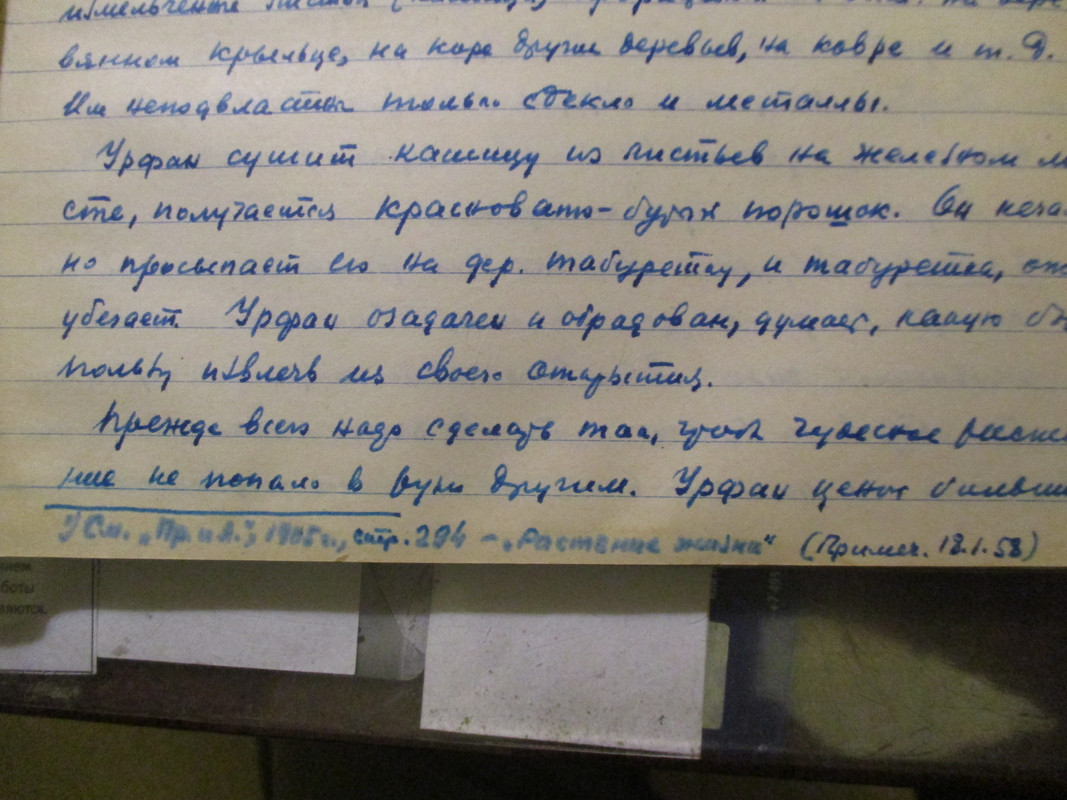 измельченные листья
вянном крыльце, на коре других деревьев, на ковре и т. д.
Им неподвластны только стекло и металлы.
Урфан сушит кашицу из листьев на железном ли
сте, получается красновато-бурый порошок. Он неча
но просыпает его на дер. табуретку, и табуретка, ож
убегает. Урфан озадачен и обрадован, думает, какую бы
пользу извлечь из своего открытия.
Прежде всего надо сделать так, чтоб чудесное расте
ние не попало в руки другим. Урфан целой
См. „Пр. и Л.", 1905 г., стр. 294 – „Растение жизни" (Примеч. 18.1.58)
нием
боты
вляются.